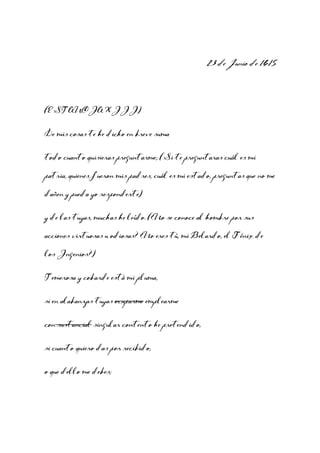 23 de Junio de 1615
(ESTANCIA XIII)
De mis cosas te he dicho en breve suma
todo cuanto quisieras preguntarme; (Si te preguntaras cuál es mi
patria, quienes fueron mis padres, cuál es mi estado, preguntas que no me
dañen y pueda yo responderte)
y de las tuyas, muchas he leído. (¿No se conoce al hombre por sus
acciones virtuosas u odiosas? ¿No eres tú, mi Belardo, el Fénix de
los Ingenios?)
Temerosa y cobarde está mi pluma,
si en alabanzas tuyas ocuparme emplearme
con singular contento he pretendido;
si cuanto quiero das por recibido,
o que dello me debes;